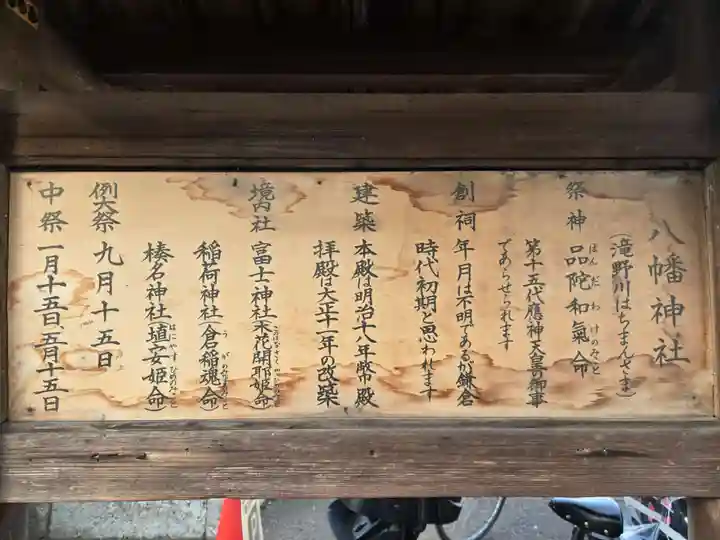 八幡神社
(滝野川はちまんさま)
祭神 品陀和氣命
ほんだわけのみこと
第十五代應神天皇の御事
であらせられます
創祠 年月は不明であるが鎌倉
時代初期と思われます
建築 本殿は明治十八年幣殿
拝殿は大正十一年の改築
境内社 富士神社(木花開耶姫命)
稲荷神社(倉稲魂命)
榛名神社(埴安姫命)
はにやすひめのみこと
例大祭 九月十五日
中祭 一月十五日、五月十五日